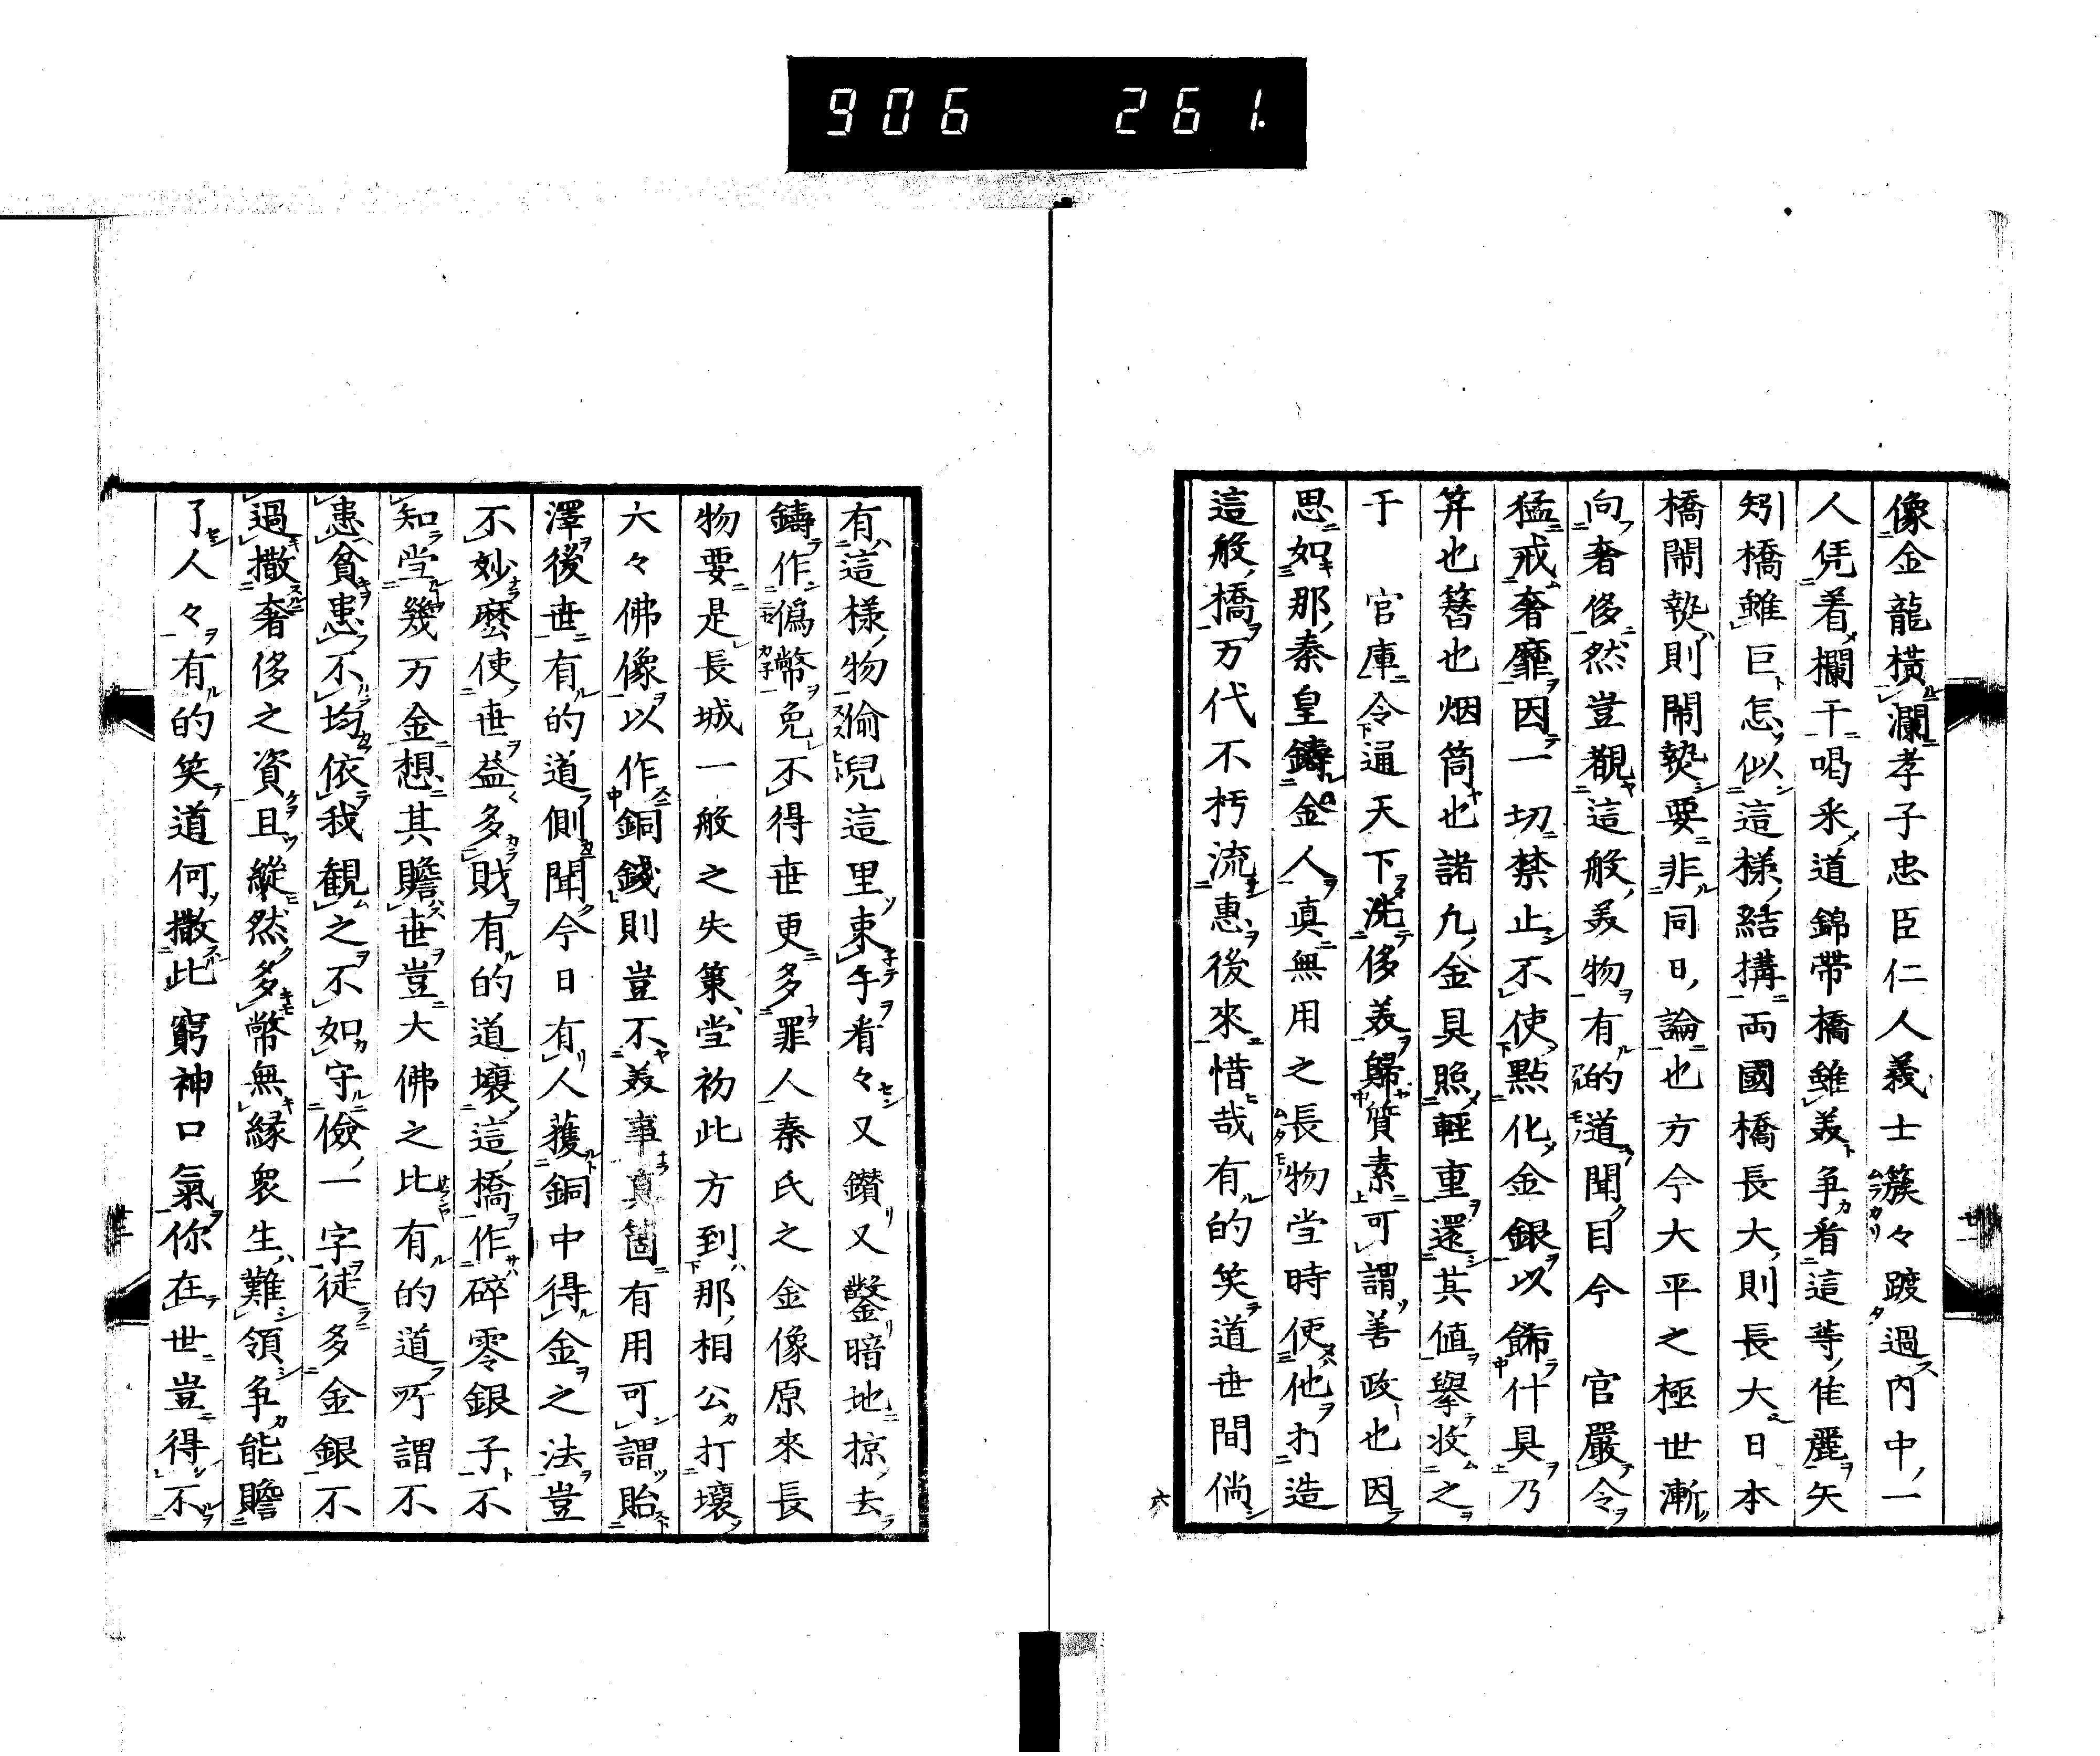 906 261.
像金龍橫瀾孝子忠臣仁人義士簇々踱過內中一
人凭着欄干喝釆道錦帶橋雖美爭看這等佳麗矢
矧橋雖巨怎似這樣結搆両國橋長大則長大日本
橋鬧𤍠則鬧𤍠要非同日論也方今大平之極世漸
向奢侈然豈覩這般美物有的道聞目今　官嚴令
猛戒奢靡因一切禁止不使點化金銀以飾什具乃
筭也簪也烟筒也諸凢金具照輕重還其値擧收之
于　官庫令通天下洗侈美歸質素可謂善政也因
思如那秦皇鑄金人真無用之長物当時便他打造
這般橋万代不朽流惠後來惜哉有的笑道世間倘
六
有這樣物偷兒這里束手看々又鑽又鑿暗地掠去
鑄作僞幣免不得世更多罪人秦氏之金像原來長
物要是長城一般之失策当初此方到那相公打壞
大々佛像以作銅錢則豈不美事真箇有用可謂貽
澤後世有的道側聞今日有人獲銅中得金之法豈
不妙麽使世益多財有的道壞這橋作碎零銀子不
知堂幾万金想其贍世豈大佛之比有的道所謂不
患貧患不均依我観之不如守儉一字徒多金銀不
過撒奢侈之資且縱然多幣無緣衆生難領爭能贍
了人々有的笑道何撒此窮神口氣你在世豈得不